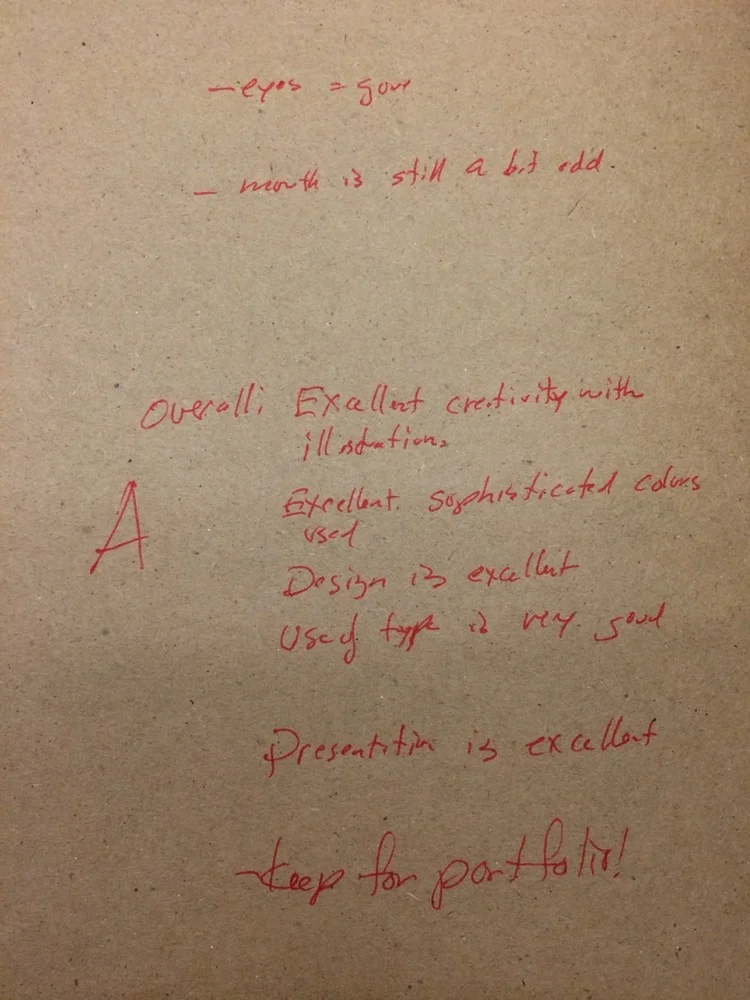 - eyes = good
- mouth is still a bit odd.
Overall: Excellent creativity with
illustration.
A
Excellent sophisticated colors
used
Design is excellent
Use of type is very good
Presentation is excellent
- Keep for portfolio!